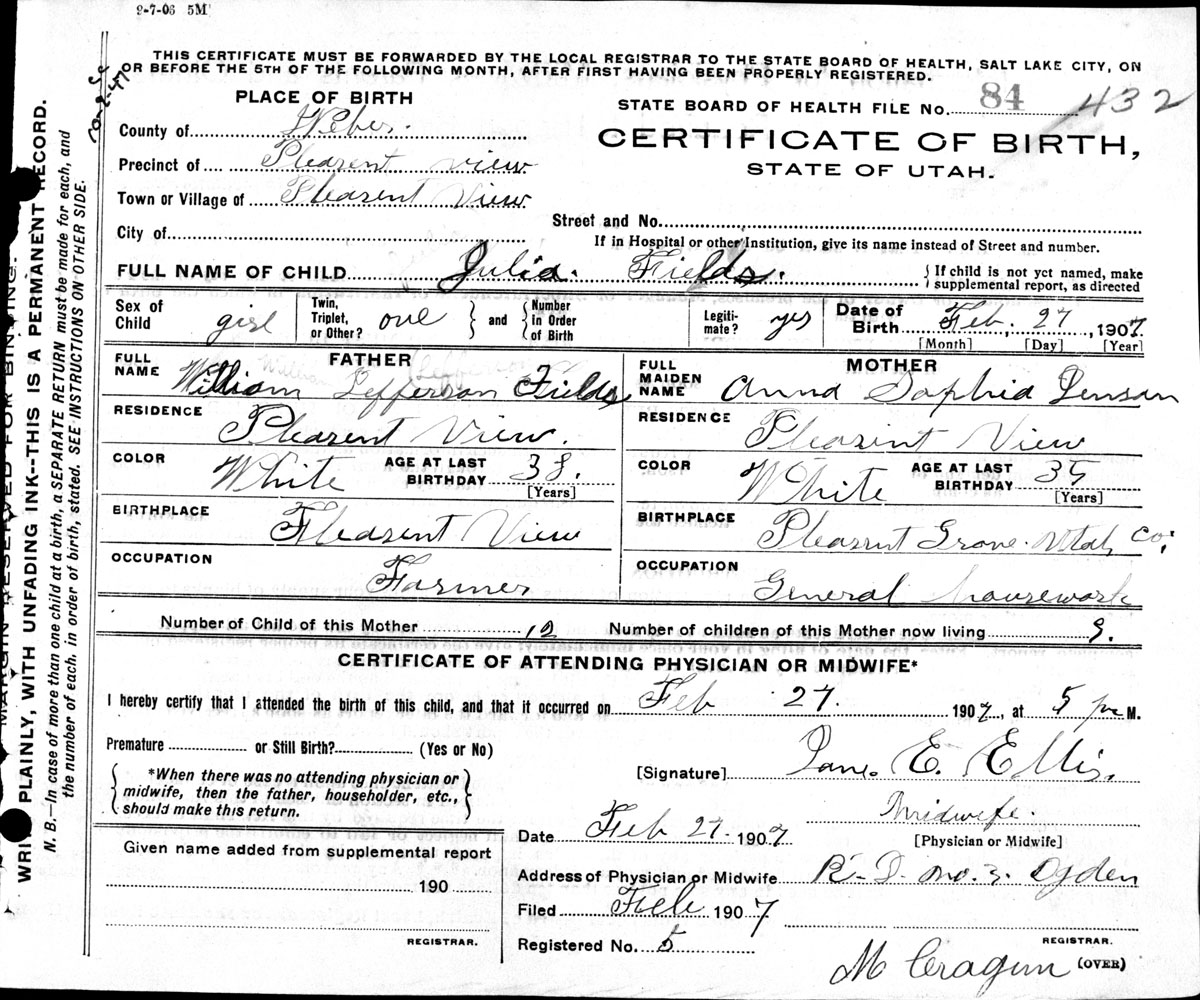 2-7-06 5M
THIS CERTIFICATE MUST BE FORWARDED BY THE LOCAL REGISTRAR TO THE STATE BOARD OF HEALTH, SALT LAKE CITY, ON
OR BEFORE THE 5TH OF THE FOLLOWING MONTH, AFTER FIRST HAVING BEEN PROPERLY REGISTERED.
PLACE OF BIRTH
STATE BOARD OF HEALTH FILE No. 84 432
County of Weber.
CERTIFICATE OF BIRTH,
Precinct of Pleasent View
STATE OF UTAH.
Town or Village of Pleasent View
Street and No.
City of
If in Hospital or other Institution, give its name instead of Street and number.
FULL NAME OF CHILD Julia. Fields.
If child is not yet named, make
supplemental report, as directed
Sex of Child girl
Twin, Triplet, or Other? one
and
Number in Order of Birth
Legiti-mate? yes
Date of Birth Feb. 27, 1907.
[Month] [Day] [Year]
FATHER
FULL NAME William Jefferson Fields
RESIDENCE
Pleasent View.
COLOR White AGE AT LAST BIRTHDAY 38.
[Years]
BIRTHPLACE
Pleasent View
OCCUPATION
Farmer
MOTHER
FULL MAIDEN NAME Anna Sophia Jenson
RESIDENCE
Pleasint View
COLOR White AGE AT LAST BIRTHDAY 35
[Years]
BIRTHPLACE
Pleasent Grove. Utah Co.
OCCUPATION
General housework
Number of Child of this Mother 12 Number of children of this Mother now living 9.
CERTIFICATE OF ATTENDING PHYSICIAN OR MIDWIFE*
I hereby certify that I attended the birth of this child, and that it occurred on Feb 27. 1907, at 5 pm M.
Premature or Still Birth? (Yes or No)
*When there was no attending physician or
midwife, then the father, householder, etc.,
should make this return.
[Signature] Jane. E. Ellis.
Midwife.
[Physician or Midwife]
Date Feb 27. 1907
Given name added from supplemental report
190
REGISTRAR.
Address of Physician or Midwife R. D. no. 3. Ogden
Filed Feb 1907
Registered No. 5
REGISTRAR.
M Cragun
(OVER)
MARGIN RESERVED FOR BINDING.
PLAINLY, WITH UNFADING INK--THIS IS A PERMANENT RECORD.
N. B.—In case of more than one child at a birth, a SEPARATE RETURN must be made for each, and
the number of each, in order of birth, stated. SEE INSTRUCTIONS ON OTHER SIDE.